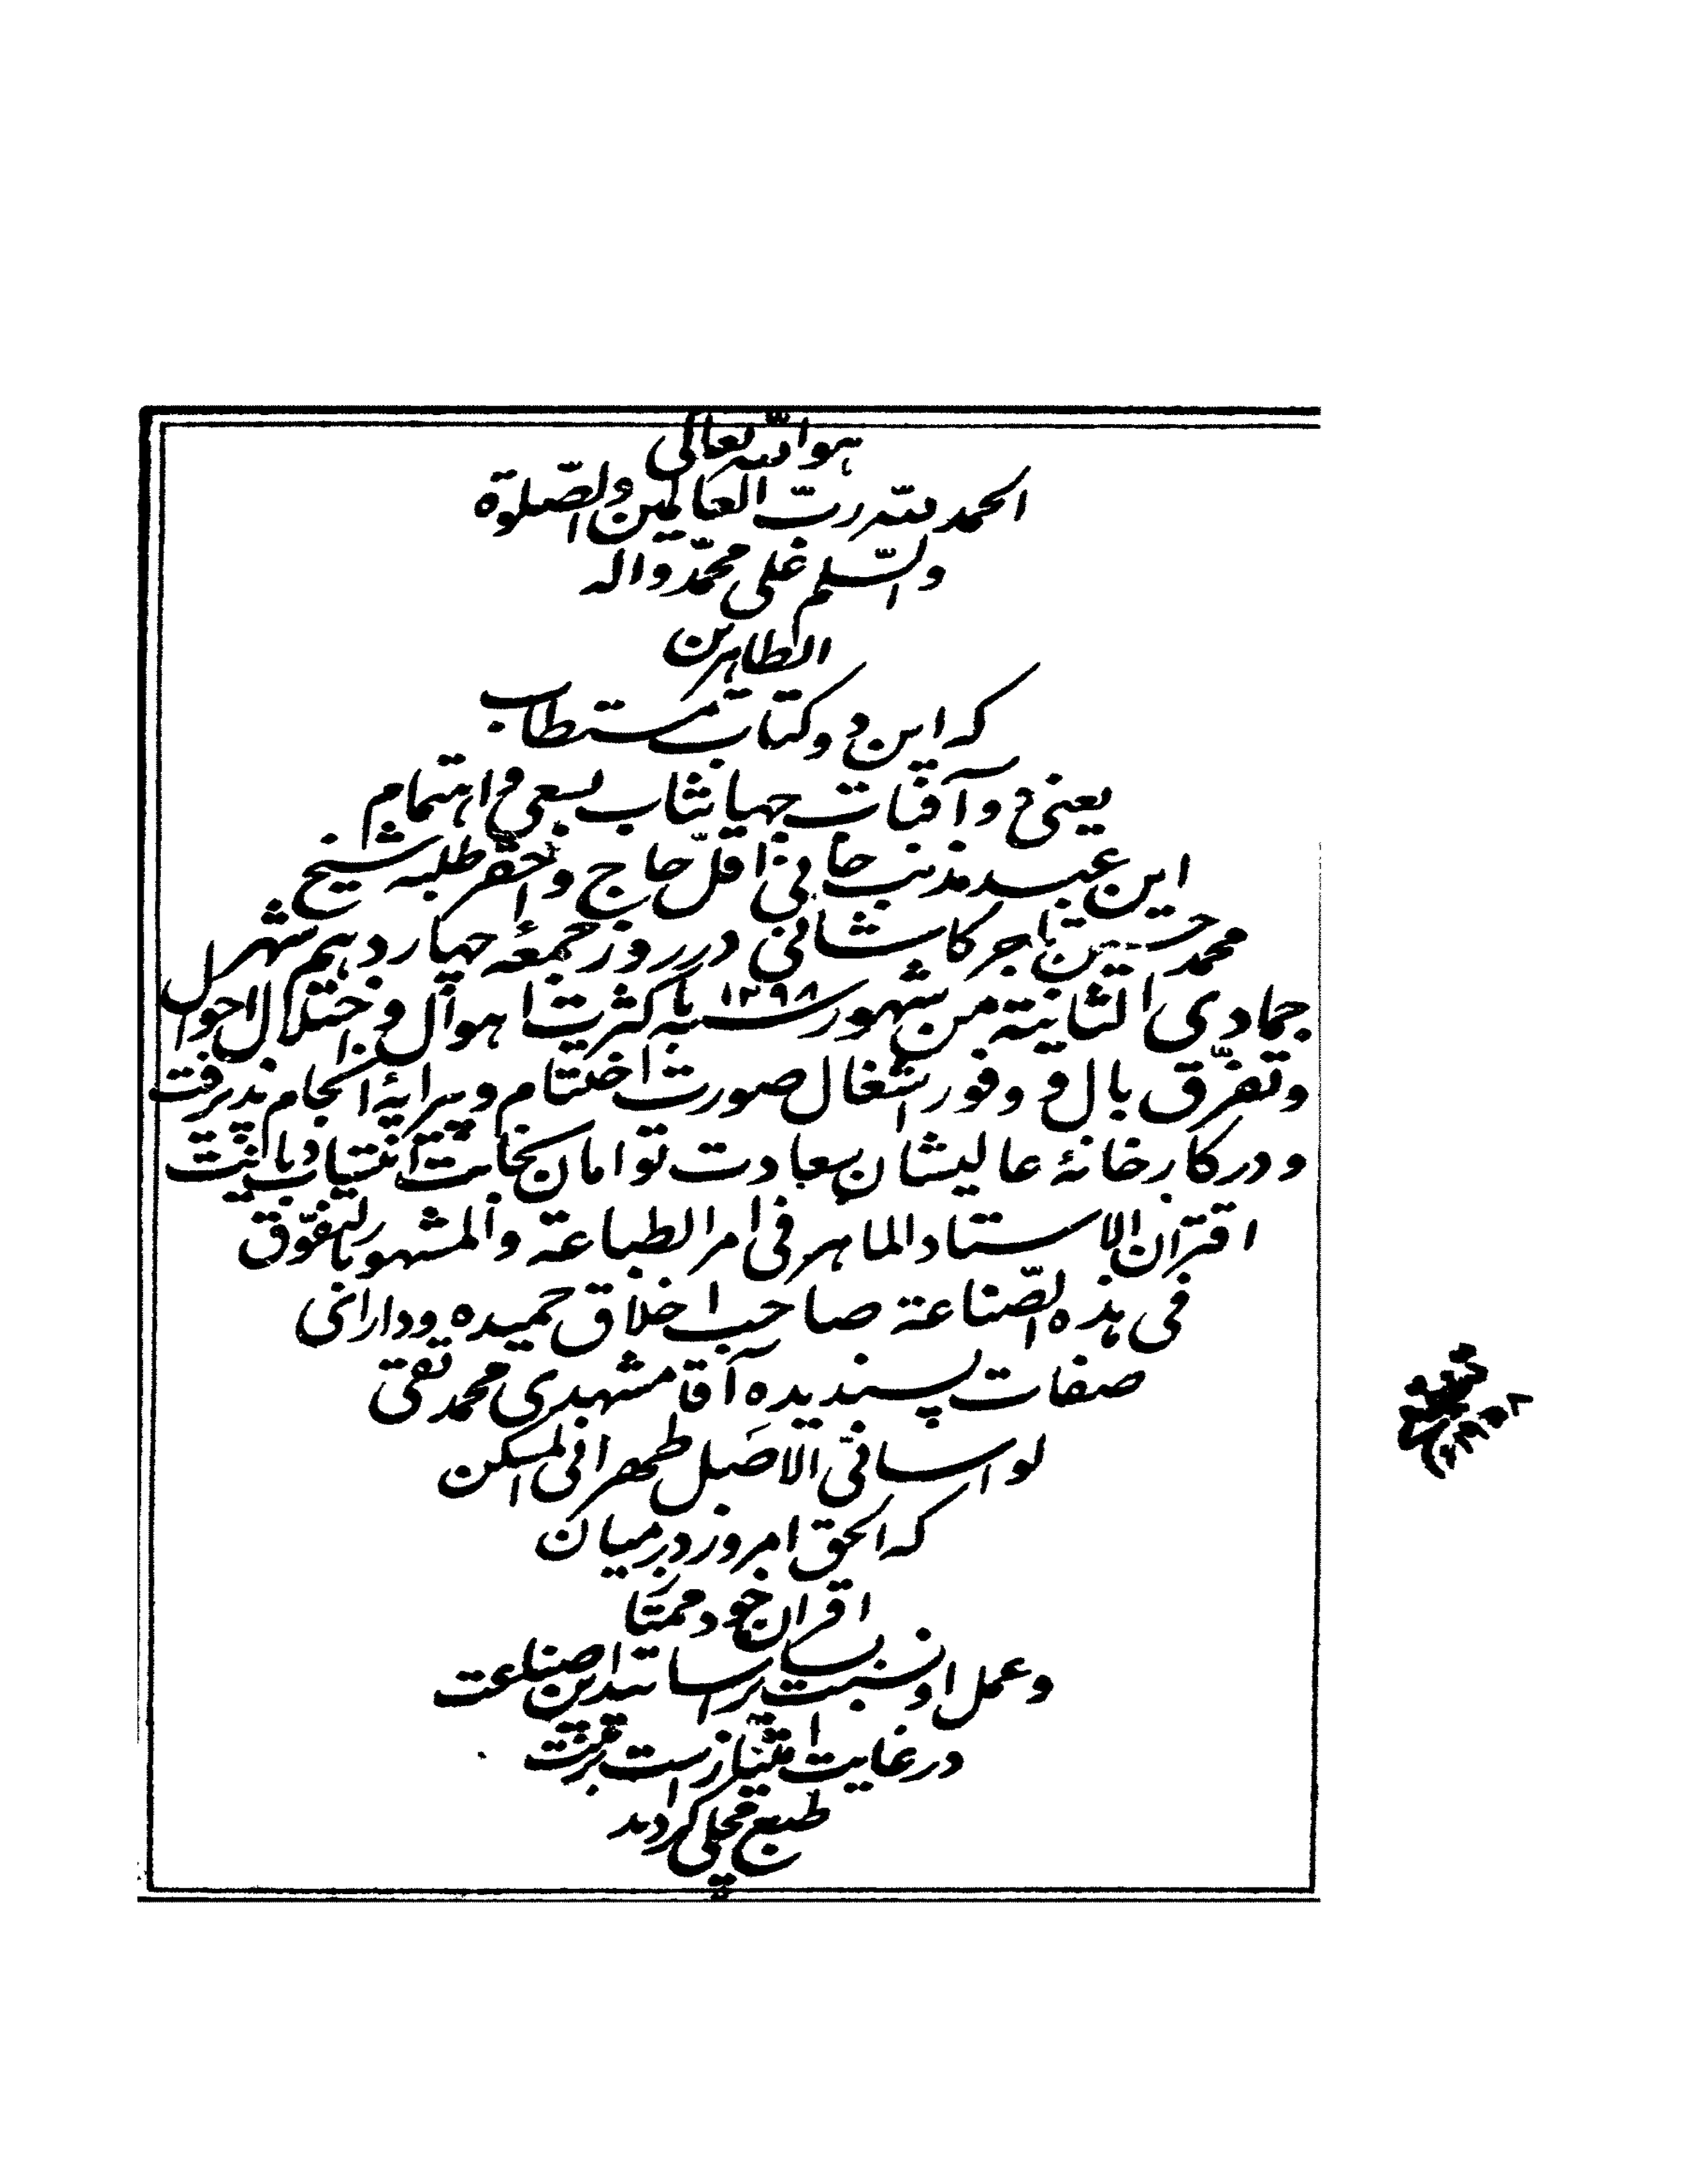 هو الله تعالی
الحمد لله رب العالمین و الصلوة
و السلم علی محمد و اله
الطاهرین
که این دو کتاب مستطاب
یعنی دو آفتاب جهانتاب بسعی و اهتمام
این عبد مذنب جانی اقل حاج و احقر طلبه شیخ
محمد حسین تاجر کاشانی در روز جمعهٔ چهاردهم شهر
جمادی الثانیة من شهور سنه ۱۲۹۸ با کثرت اهوال و اختلال احوال
و تفرّق بال و وفور اشغال صورت اختتام و پیرایهٔ انجام پذیرفت
و در کارخانهٔ عالیشان سعادت توامان نجابت انتساب دیانت
اقتران الاستاد الماهر فی امر الطباعة و المشهور بالتفوّق
فی هذه الصّناعة صاحب اخلاق حمیده و دارای
صفات پسندیده آقا مشهدی محمد تقی
لواسانی الاصل طهرانی المسکن
که الحق امروز در میان
اقران خود ممتاز
و عمل او نسبت بر اساتید این صناعت
در غایت امتیاز است بزینت
طبع محلی گردید